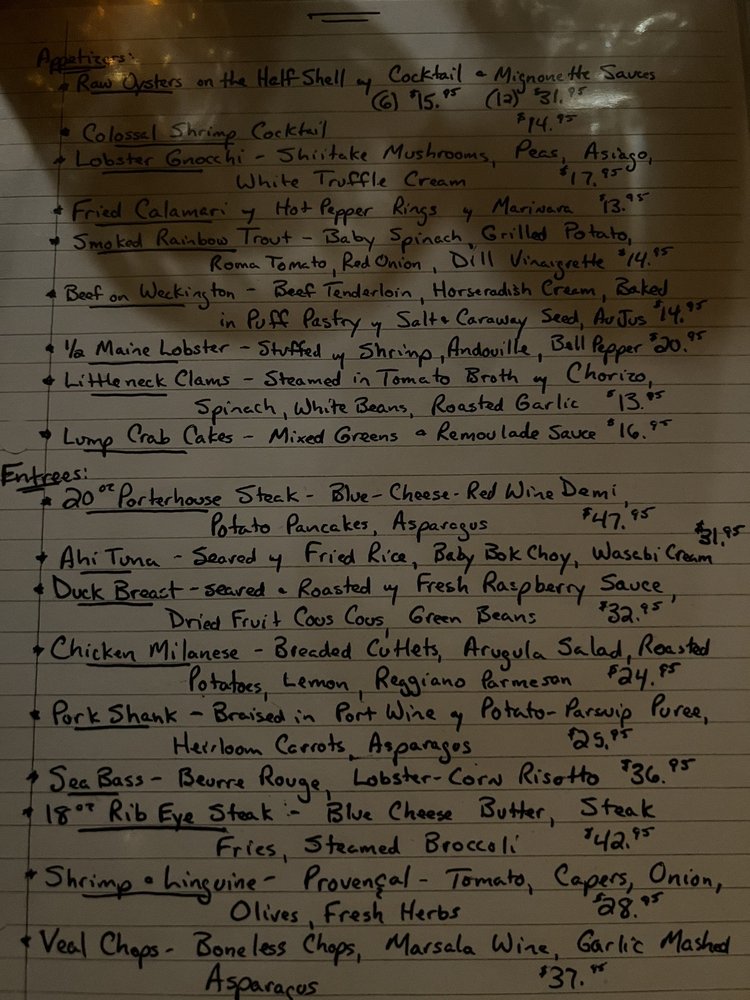 Appetizers:
• Raw Oysters on the Half Shell w/ Cocktail & Mignonette Sauces
(6) $15.95 (12) $31.95
• Colossal Shrimp Cocktail $14.95
• Lobster Gnocchi - Shiitake Mushrooms, Peas, Asiago,
White Truffle Cream $17.95
• Fried Calamari w/ Hot Pepper Rings w/ Marinara $13.95
• Smoked Rainbow Trout - Baby Spinach, Grilled Potato,
Roma Tomato, Red Onion, Dill Vinaigrette $14.95
• Beef on Weckington - Beef Tenderloin, Horseradish Cream, Baked
in Puff Pastry w/ Salt & Caraway Seed, Au Jus $14.95
• 1/2 Maine Lobster - Stuffed w/ Shrimp, Andouille, Bell Pepper $20.95
• Littleneck Clams - Steamed in Tomato Broth w/ Chorizo,
Spinach, White Beans, Roasted Garlic $13.95
• Lump Crab Cakes - Mixed Greens & Remoulade Sauce $16.95
Entrees:
• 20 oz Porterhouse Steak - Blue-Cheese-Red Wine Demi,
Potato Pancakes, Asparagus $47.95
• Ahi Tuna - Seared w/ Fried Rice, Baby Bok Choy, Wasabi Cream $31.95
• Duck Breast - seared & Roasted w/ Fresh Raspberry Sauce,
Dried Fruit Cous Cous, Green Beans $32.95
• Chicken Milanese - Breaded Cutlets, Arugula Salad, Roasted
Potatoes, Lemon, Reggiano Parmeson $24.95
• Pork Shank - Braised in Port Wine w/ Potato-Parsnip Puree,
Heirloom Carrots, Asparagos $25.95
• Sea Bass - Beurre Rouge, Lobster-Corn Risotto $36.95
• 18 oz Rib Eye Steak :- Blue Cheese Butter, Steak
Fries, Steamed Broccoli $42.95
• Shrimp & Linguine - Provençal - Tomato, Capers, Onion,
Olives, Fresh Herbs $28.95
• Veal Chops - Boneless Chops, Marsala Wine, Garlic Mashed
Asparagus $37.95